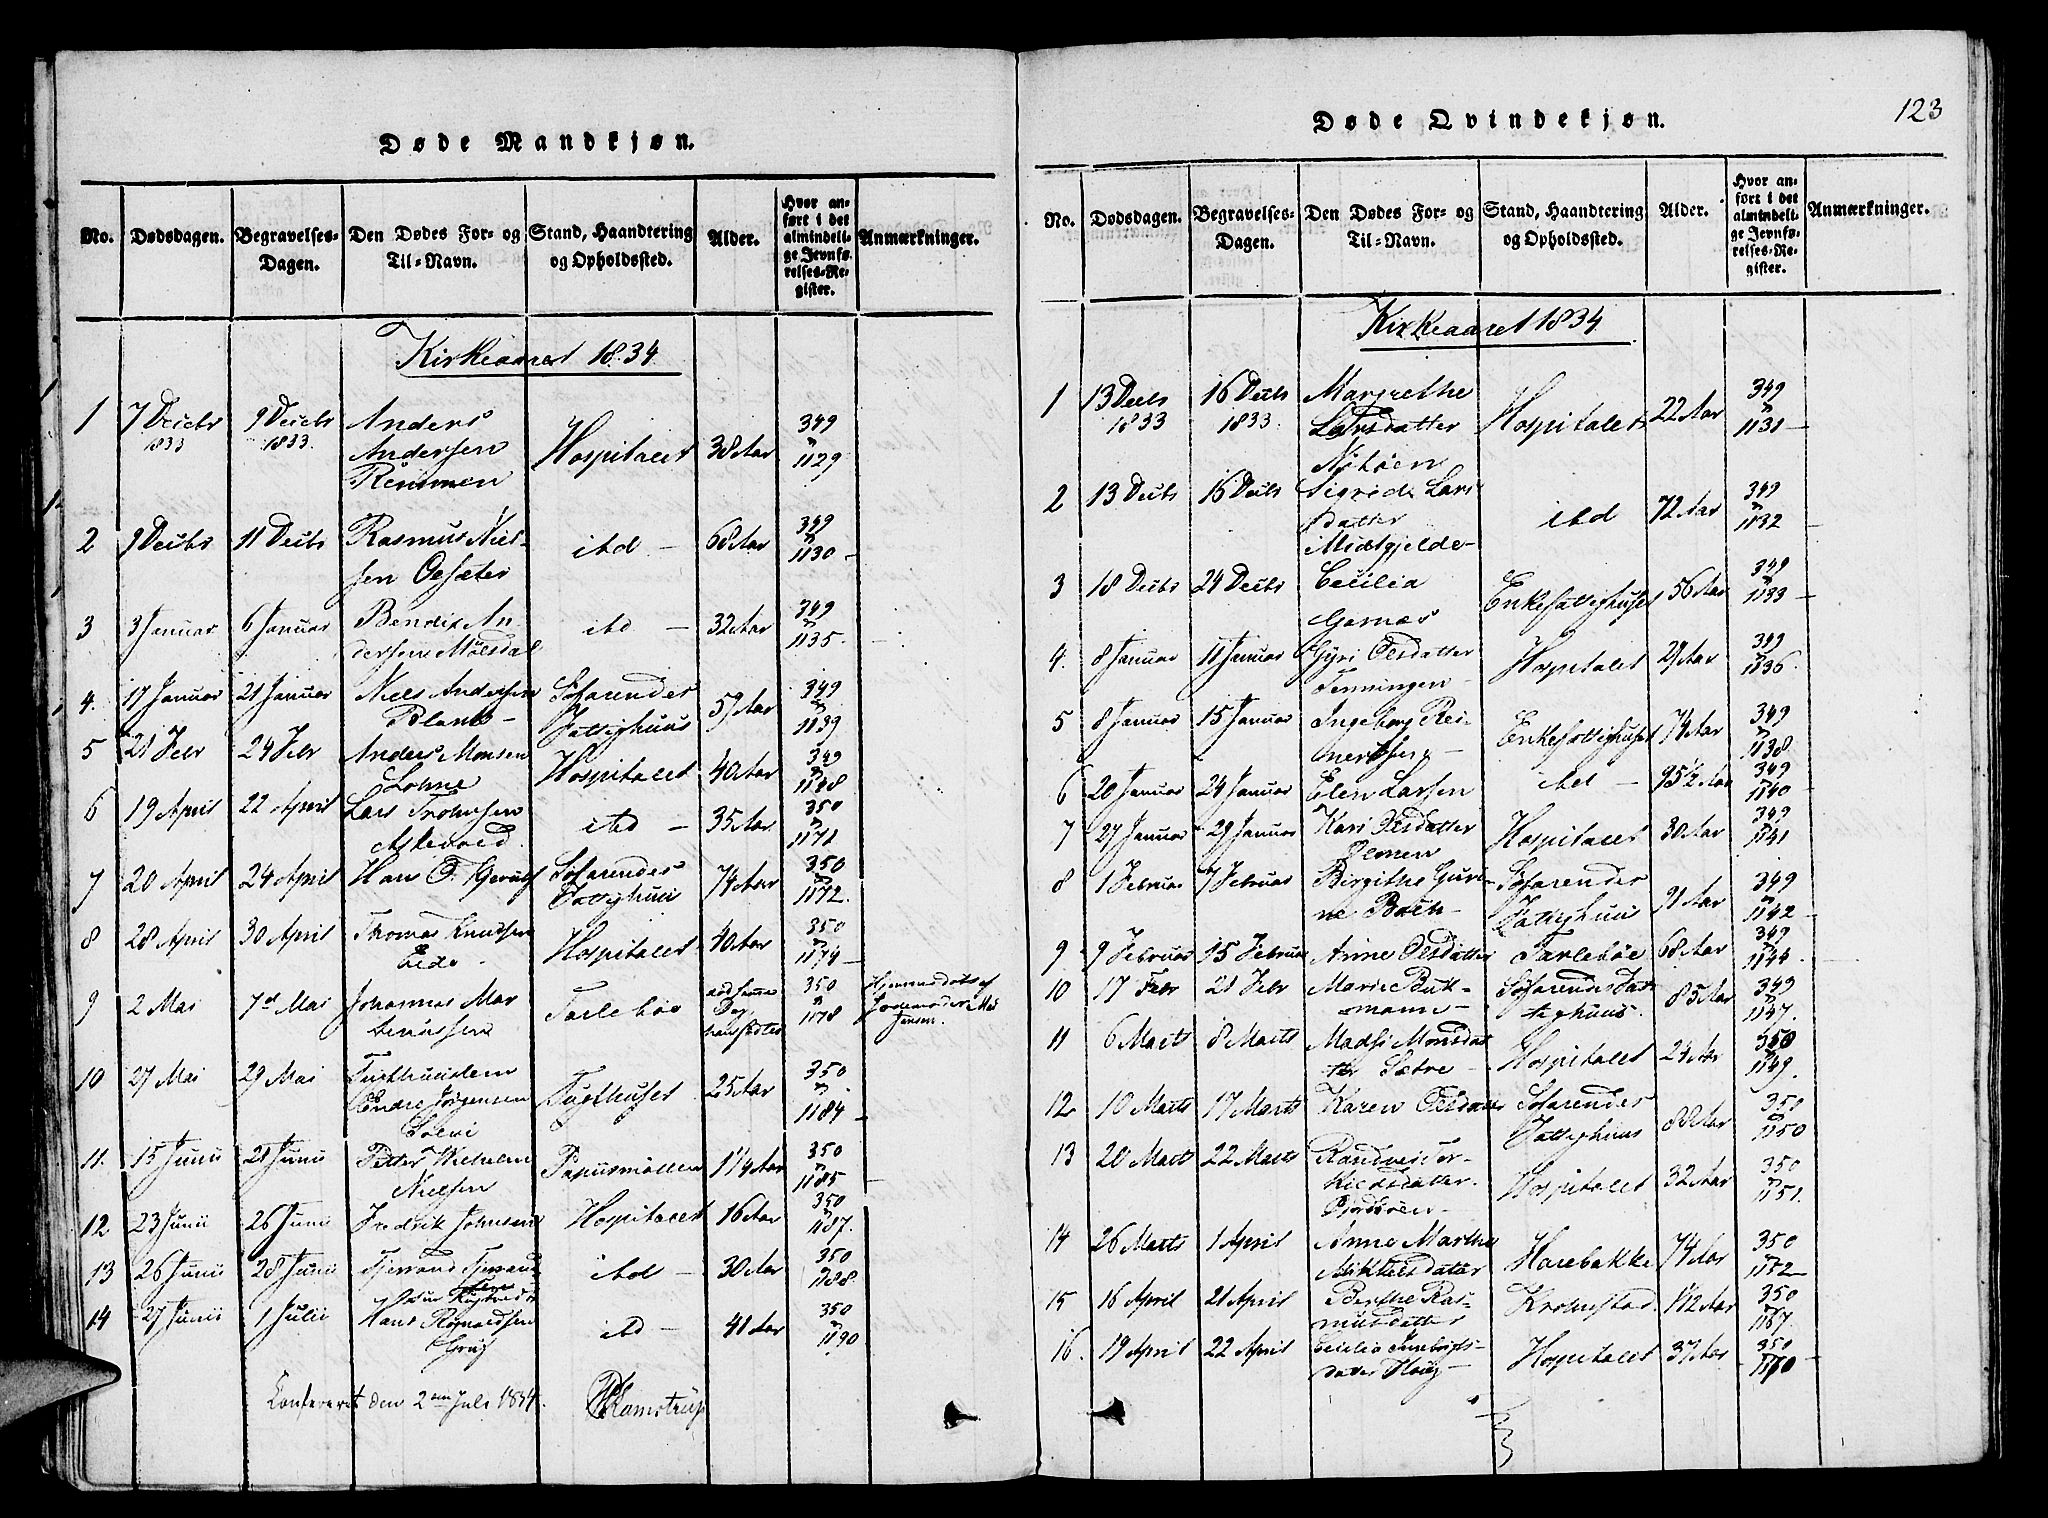 Døde Mandkjøn.
No. Dødsdagen. Begravelses-Dagen. Den Dødes For- og Til-Navn. Stand, Haandtering og Opholdssted. Alder. Hvor anført i det almindelige Jevnførelses-Register. Anmærkninger.
Kirkeaaret 1834
1 7 Decbr 1833 9 Decbr 1833. Anders Andersen Hospitalet 38 Aar 349 1129
2 9 Decbr 11 Decbr Rasmus Nielsen ibd - 68 Aar 349 1130 -
3 3 Januar 6 Januar Bendix Andersen Mølsdal ibd - 32 Aar 349 1135.
4. 17 Januar 21 Januar Niels Andersen Søfarendes Fattighuus 59 Aar 349 1139
5 21 Febr 24 Febr Anders Monsen Lohne Hospitalet 40 Aar 349 1148
6 19 April 22 April Lars Askevold. ibd - 35 Aar 350 1171
7 20 April 24 April Hans Søfarendes Fattighuus 74 Aar 350 1172.
8 28 April 30 April Thomas Knudsen Eide. Hospitalet 40 Aar 350 1174 -
9 2 Mai 7de Mai Johannes Tarlebøe 350 1178 Hjemmedøbt af Jordemoder
10 27 Mai 29 Mai Endre Jørgensen Tugthuset 25 Aar 350 1184 -
11. 15 Junii 21 Junii Petter Wilhelm Nielsen Papiirmøllen 1 1/4 Aar 350 1185 -
12. 23 Junii 26 Junii Fredrik Johnsen Hospitalet 16 Aar 350 1187.
13 26 Junii 28 Junii ibd - 30 Aar 350 1188.
14 27 Junii 1 Julii Hans ibd - 41 Aar 350 1190
Confereret den 2den Juli 1834. Ramstrup
123
Døde Qvindekjøn.
No. Dødsdagen. Begravelses-Dagen. Den Dødes For- og Til-Navn. Stand, Haandtering og Opholdssted. Alder. Hvor anført i det almindelige Jevnførelses-Register. Anmærkninger.
Kirkeaaret 1834
1 13 Decbr 1833 16 Decbr 1833. Margrethe Larsdatter Hospitalet 22 Aar 349 1131 -
2 13 Decbr 16 Decbr Sigride Larsdatter Midtgjelde- ibd 72 Aar 349 1132 -
3 18 Decbr 24 Decbr Cecilia Garnæs Enkefattighuset 56 Aar 349 1133 -
4. 8 Januar 11 Januar Gyri Olsdatter Tenningen - Hospitalet 29 Aar 349 1136.
5 8 Januar 15 Januar Ingeborg Enkefattighuset 74 Aar 349 1138.
6 20 Januar 24 Januar Elen Larsen ibd - 95 1/2 Aar 349 1140 -
7 27 Januar 29 Januar Kari Olsdatter Hospitalet 30 Aar 349 1141
8 1 Februar 7 Februar Birgithe Søfarendes Fattighuus 91 Aar 349 1142 -
9 9 Februar 15 Februar Anne Olsdatter Tarlebøe 68 Aar 349 1144 -
10 17 Febr 21 Febr Marie Buttmann - Søfarendes Fattighuus. 85 Aar 349 1147.
11 6 Marts 8 Marts Madsi Monsdatter Sætre - Hospitalet 24 Aar 350 1149.
12 10 Marts 17 Marts Karen Olsdatter Søfarendes Fattighuus 88 Aar 350 1150
13 20 Marts 22 Marts Hospitalet 32 Aar 350 1151.
14 26 Marts 1 April Anne Marthe Mikkelsdatter Harebakke 74 Aar 350 1152 -
15 16 April 21 April Berthe Rasmusdatter Krohnstad. 1 1/2 Aar 350 1167.
16. 19 April 22 April Cecilia Hospitalet 37 Aar 350 1170